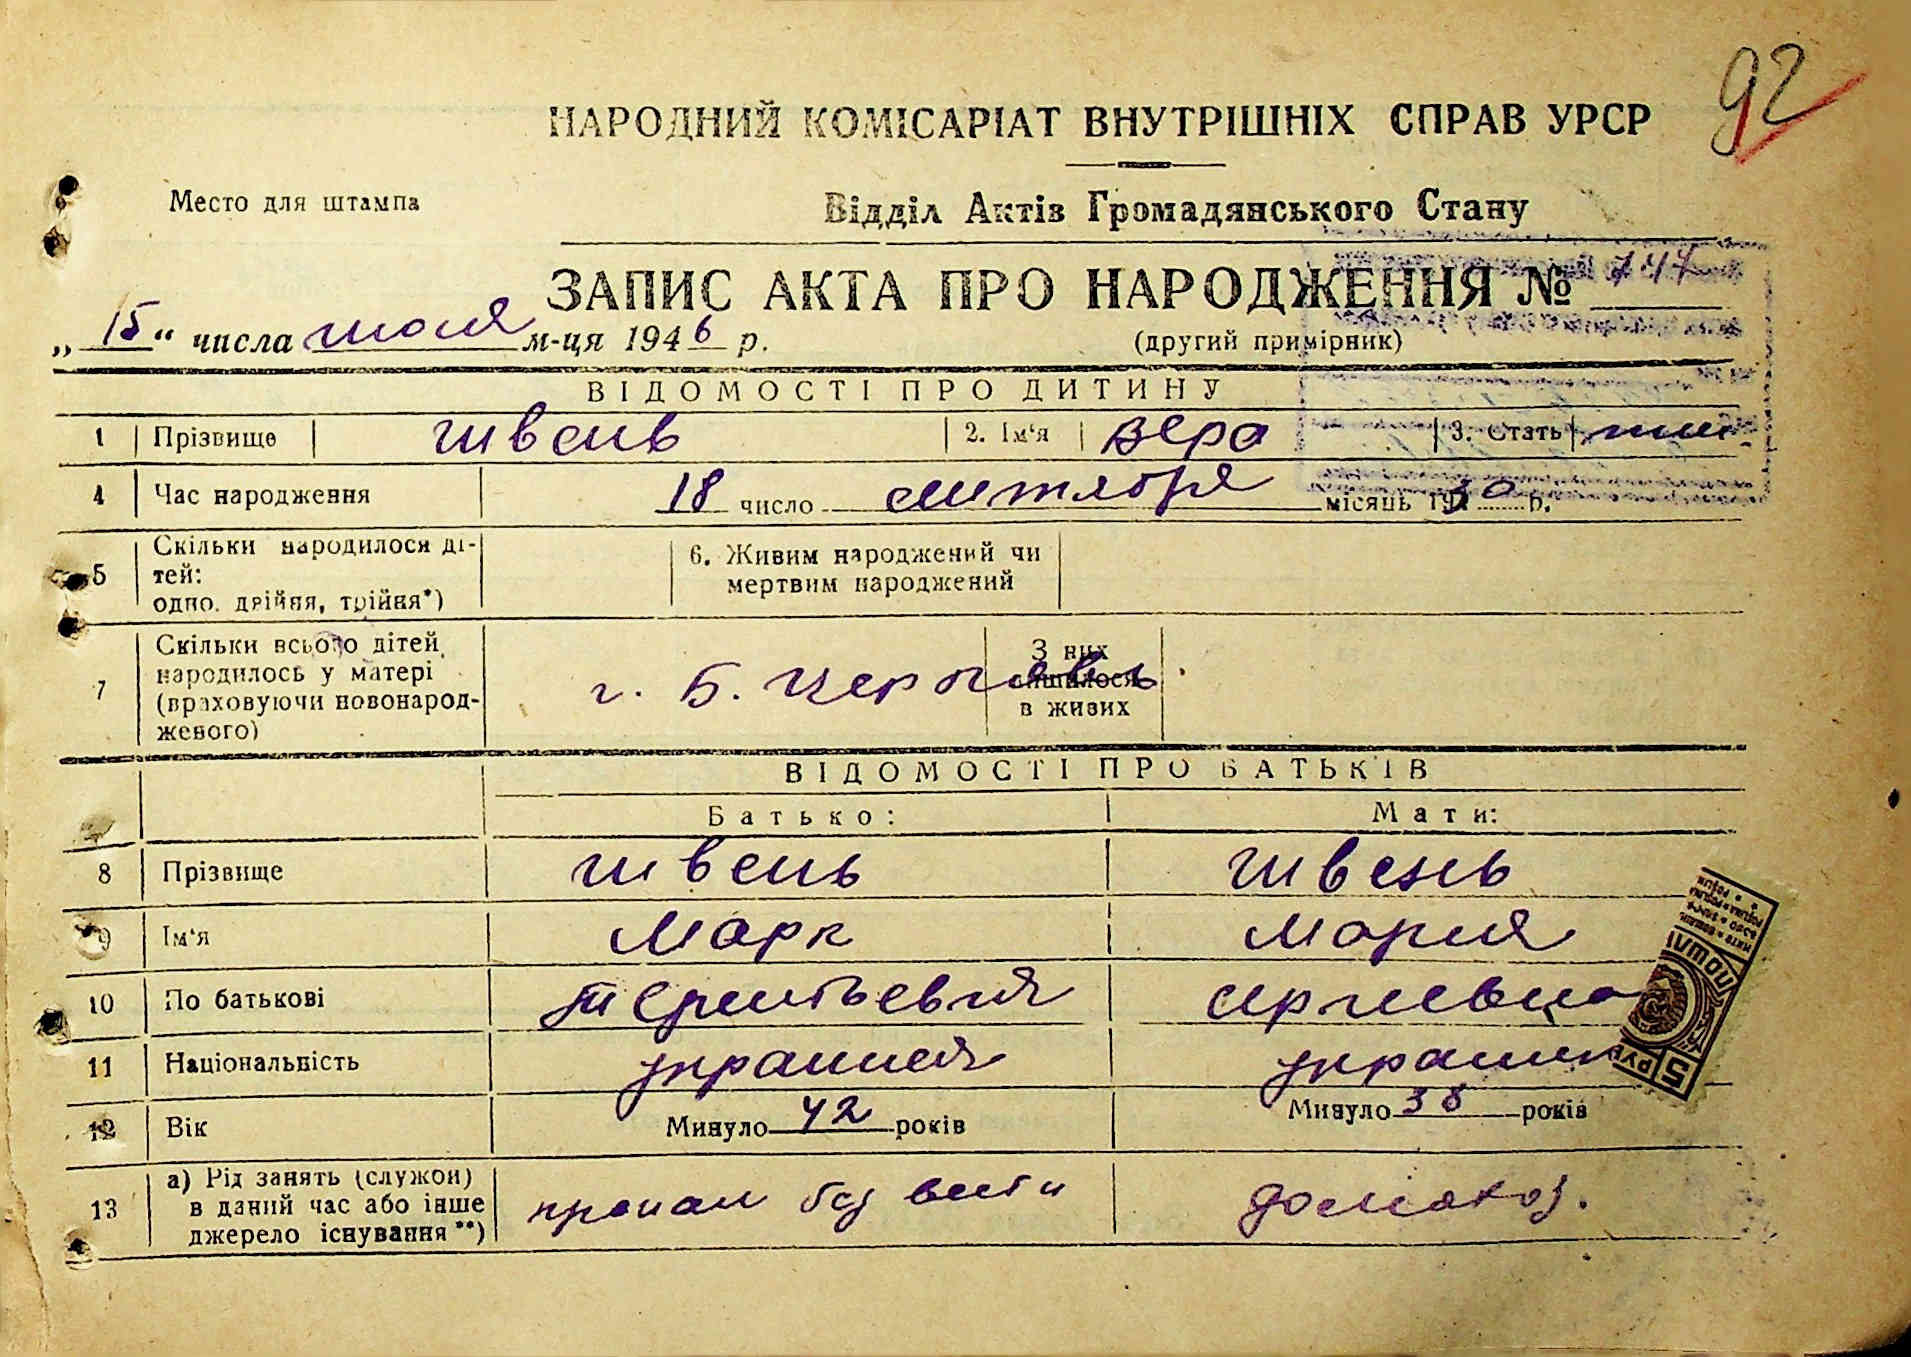 92
НАРОДНИЙ КОМІСАРІАТ ВНУТРІШНІХ СПРАВ УРСР
Место для штампа
Відділ Актів Громадянського Стану
ЗАПИС АКТА ПРО НАРОДЖЕННЯ № 747
„15“ числа июля м-ця 1946 р.
(другий примірник)
ВІДОМОСТІ ПРО ДИТИНУ
1 Прізвище Швень 2. Ім'я Вера 3. Стать жен
4 Час народження 18 число сентября місяць 1930 р.
5 Скільки народилося ді-
тей:
одно, двійня, трійня*)
6. Живим народжений чи
мертвим народжений
7 Скільки всього дітей
народилось у матері
(враховуючи новонарод-
женого)
г. Б. Церковь.
З них
лишилося
в живих
ВІДОМОСТІ ПРО БАТЬКІВ
Батько: Мати:
8 Прізвище Швень Швень
9 Ім'я Марк Мария
10 По батькові Терентьевич Сергиевна
11 Національність украинец украин
12 Вік Минуло 42 років Минуло 38 років
13 а) Рід занять (служби)
в даний час або інше
джерело існування**)
пропал без вести домохоз.
5 РУБ